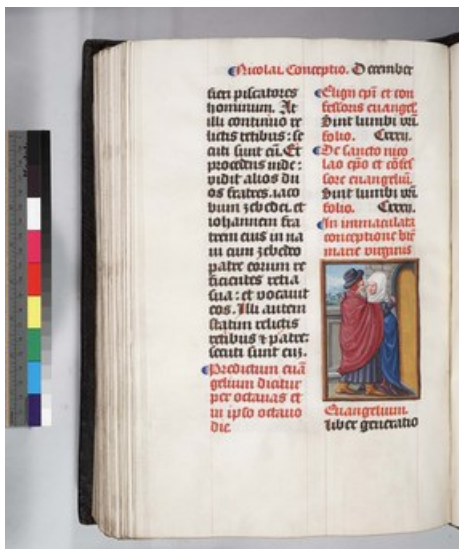 Nicolai. Conceptio. December
fieri piscatores
hominum. At
illi continuo re
lictis retibus: se
cuti sunt eū. Et
procedens inde:
vidit alios du
os fratres. iaco
bum zebedei. et
iohannem fra
trem eius in na
ui cum zebedeo
patre eorum re
ficientes retia
sua: et vocauit
eos. Illi autem
statim relictis
retibus ⁊ patre:
secuti sunt eum.
Predictum euā
gelium dicitur
per octauas et
in ipso octauo
die
Eligii ep̄i et con
fessoris euangel̄
Sint lumbi vr̄i
folio. Cxxxij.
De sancto nico
lao ep̄o et cōfes
sore euangeliū.
Sint lumbi vr̄i
folio. Cxxxij.
In immaculata
conceptione bt̄e
marie virginis
Euangelium.
Liber generatio